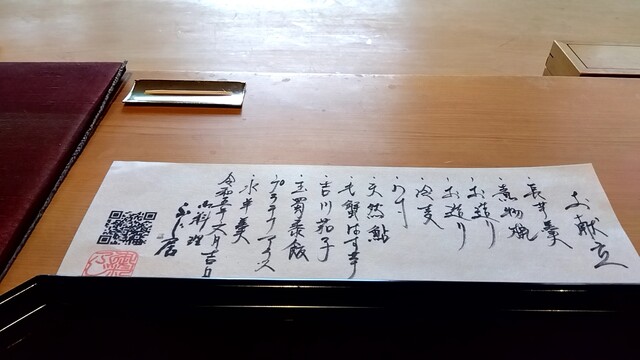 お献立
・長芋羹
・煮物椀
・お造り
・お造り
・冷麦
・天然鮎
・毛蟹はす芋
・吉川茄子
・玉蜀黍飯
・プラチナアイス
・水羊羹
令和五年六月吉日
御料理
ふじ居